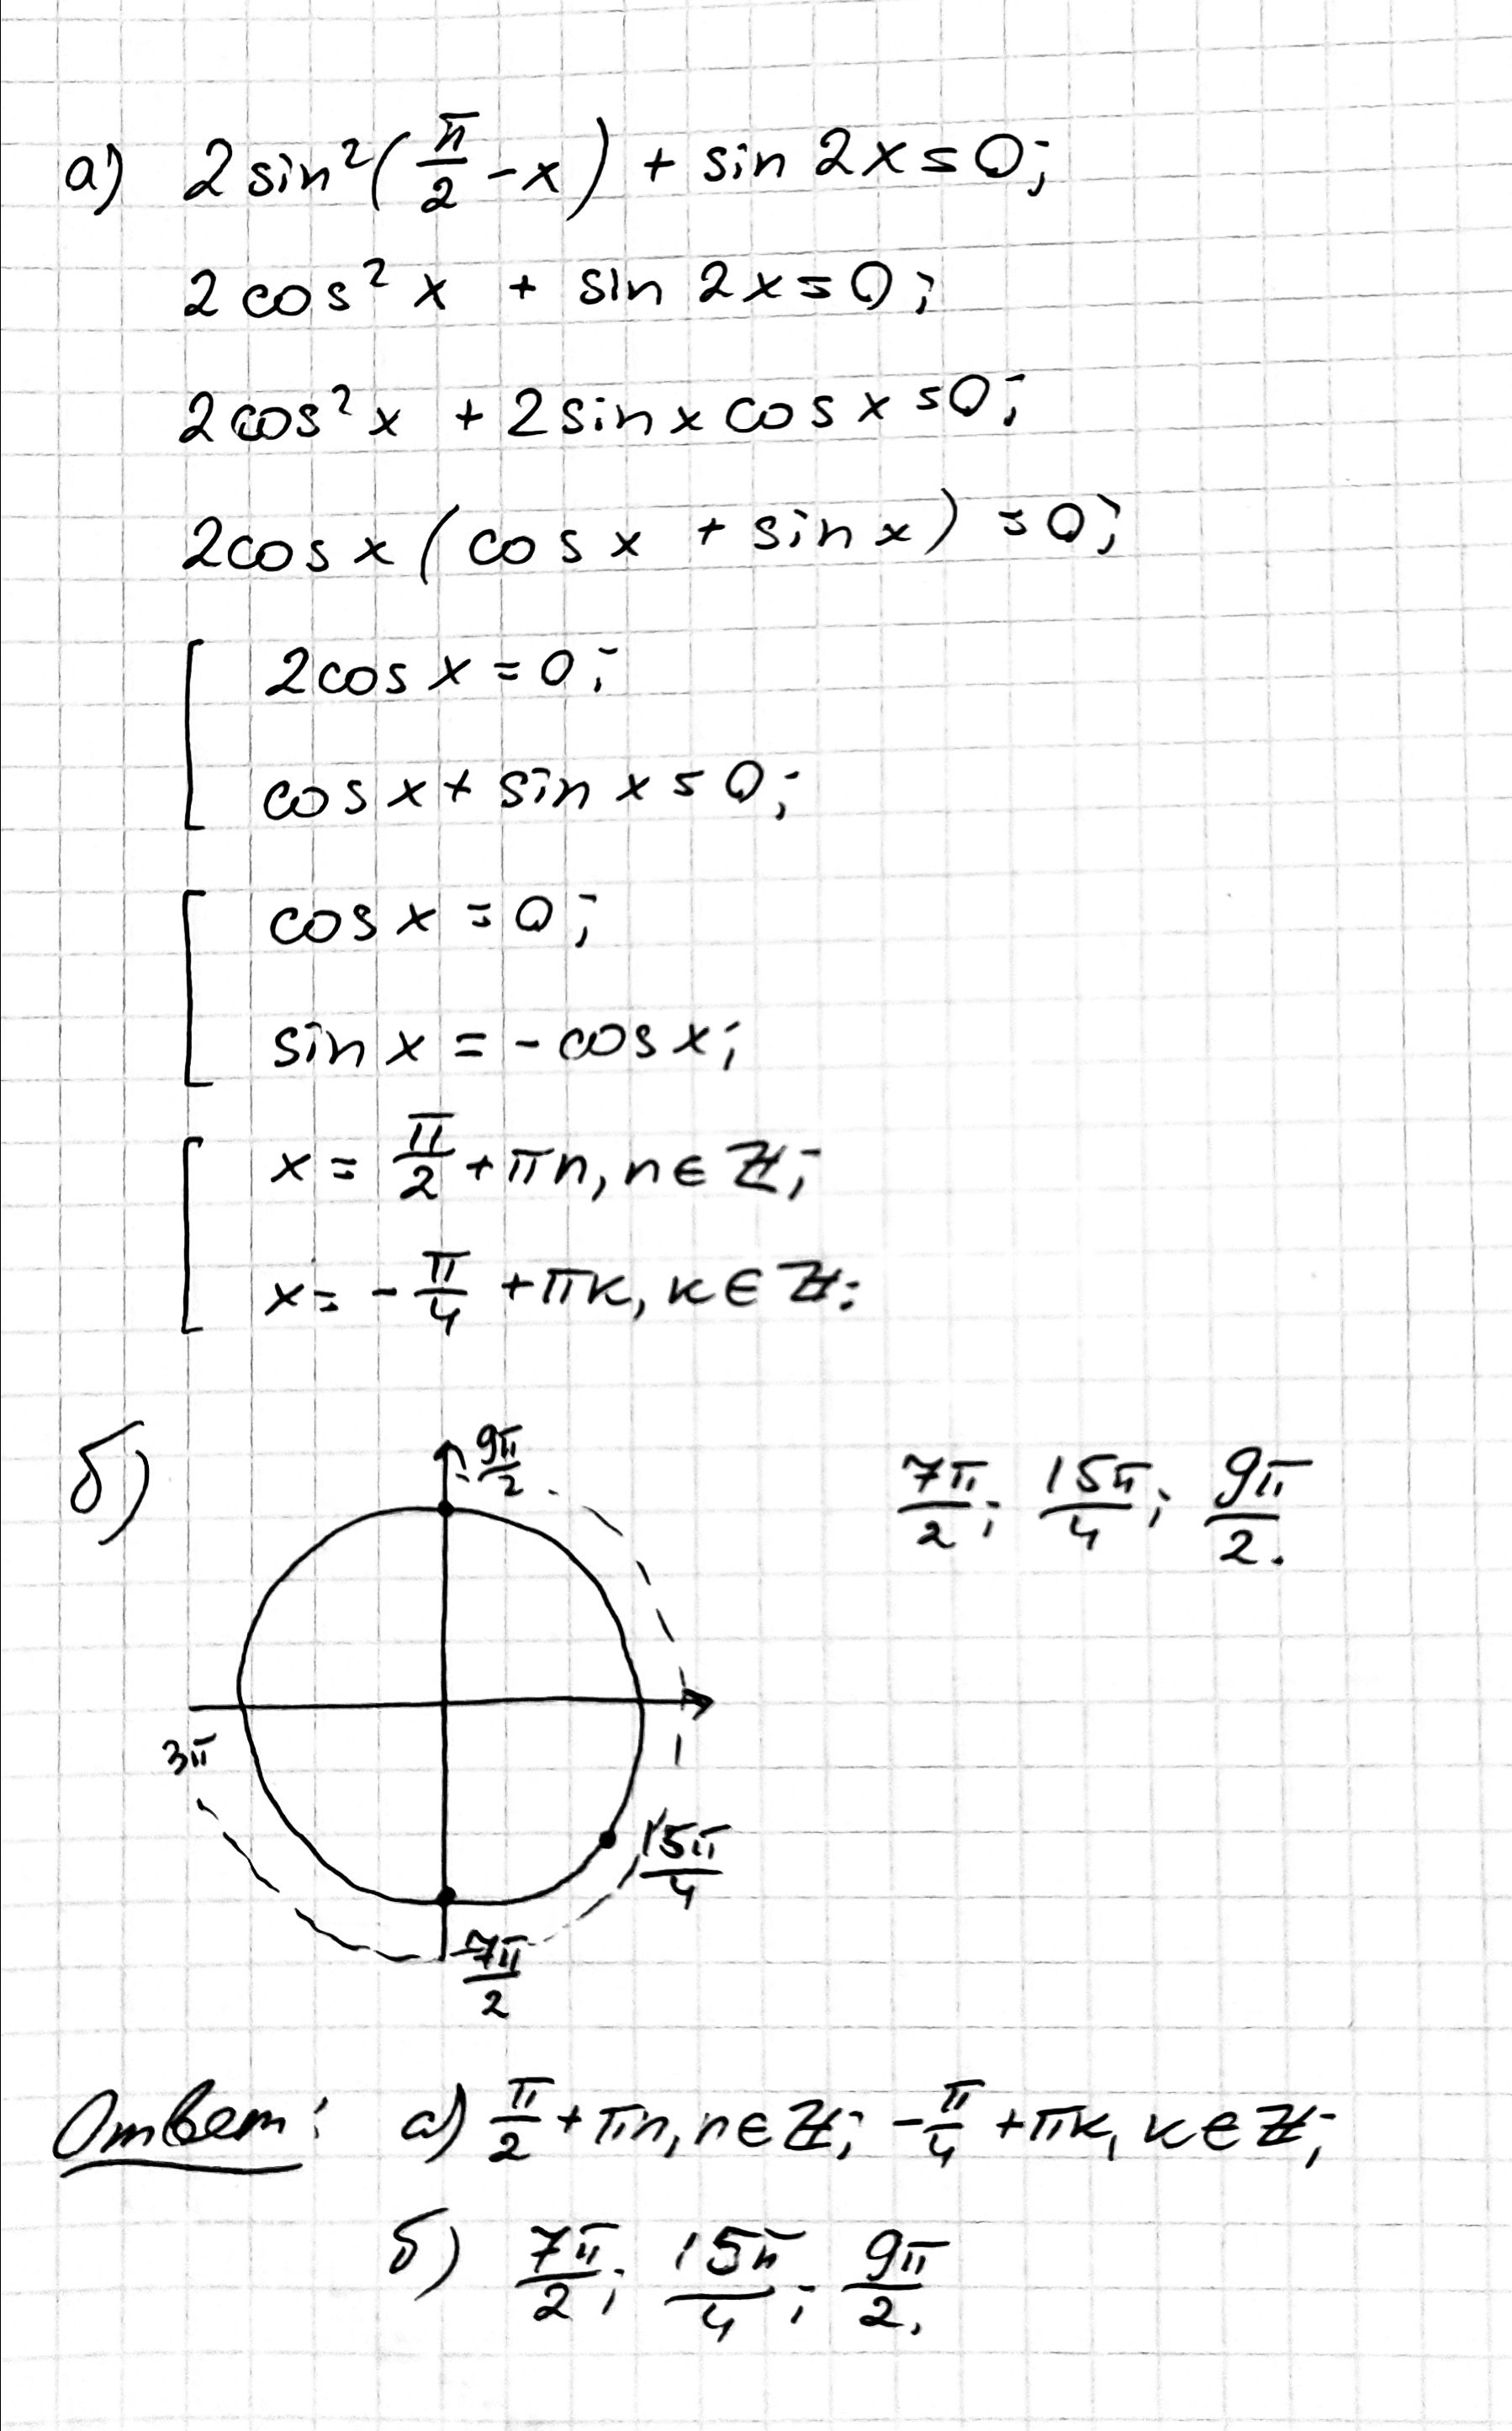 а) 2 sin²(π/2 - x) + sin 2x = 0;
2 cos² x + sin 2x = 0;
2 cos² x + 2 sin x cos x = 0;
2 cos x (cos x + sin x) = 0;
[ 2 cos x = 0;
cos x + sin x = 0;
[ cos x = 0;
sin x = - cos x;
[ x = π/2 + πn, n ∈ ℤ;
x = - π/4 + πk, k ∈ ℤ.
б) 9π/2
7π/2; 15π/4; 9π/2.
3π
15π/4
7π/2
Ответ: а) π/2 + πn, n ∈ ℤ; - π/4 + πk, k ∈ ℤ;
б) 7π/2; 15π/4; 9π/2.